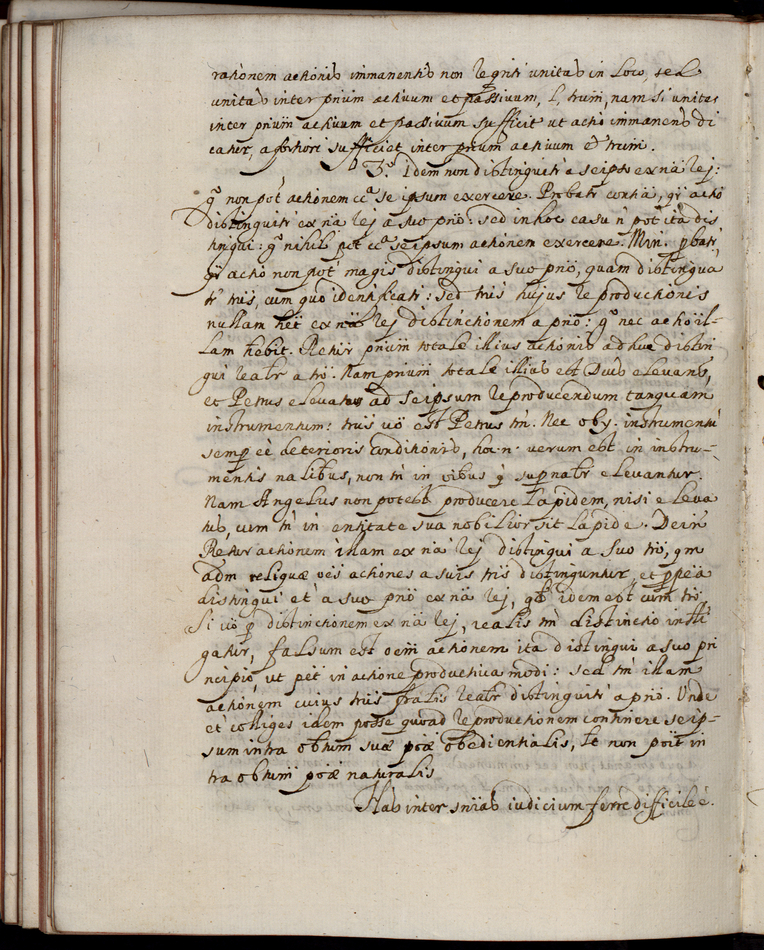 rationem actionis immanentis non reqriti unitas in Loco, sed
unitas inter prium activum et passivum, l, trum, nam si unitas
inter prium activum et passivum sufficit ut actio immanens di
catur, a fortiori sufficiet inter prium activum et trum.
3.º Idem non distinguiti a seipso ex nã rej:
gº non pot actionem cca se ipsum exercere. Probatr contia, qa actio
distinguitr ex nã rej a suo prio: sed in hoc casu n pot ita dis
tingui: gº nihil pot cca seipsum actionem exercere. Min. pbatr,
qa actio non pot magis distingui a suo prio, quam distingua
tr trus, cum quo identificatr: sed trus hujus reproductionis
nullam het ex nã rej distinctionem a prio: gº nec actio il-
lam hebit. Retur prium totale illius actionis adhuc distin
gui realr a tro. Nam prium totale illius est Deus elevans,
et Petrus elevatus ad seipsum reproducendum tanquam
instrumentum: trus uo est Petrus tm. Nec obj. instrumentu
semp eê deterioris conditionis, hoc. n. verum est in instru-
mentis nalibus, non tm in iis q supnatr elevantur.
Nam Angelus non potest producere lapidem, nisi eleva
tus, cum tm in entitate sua nobilior sit lapide. Dein
Retur actionem illam ex nã rej distingui a suo tro, qm
adm reliquæ oes actiones a suis tris distinguntur, et pptea
distingui et a suo prio ex nã rej, qd idem est cum tro
Si uo p distinctionem ex nã rej, realis tm distinctio intlli
gatur, falsum est oem actionem ita distingui a suo pri
ncipio, ut pet in actione productiva modi: sed tm illam
actionem cuius trus fralis realr distinguitr a prio. Unde
et colliges idem posse quoad reproductionem continere seip-
sum intra obtum suæ poæ obedientialis, lt non poit in
tra obtum poæ naturalis
Has inter snias iudicium ferre difficile ê.